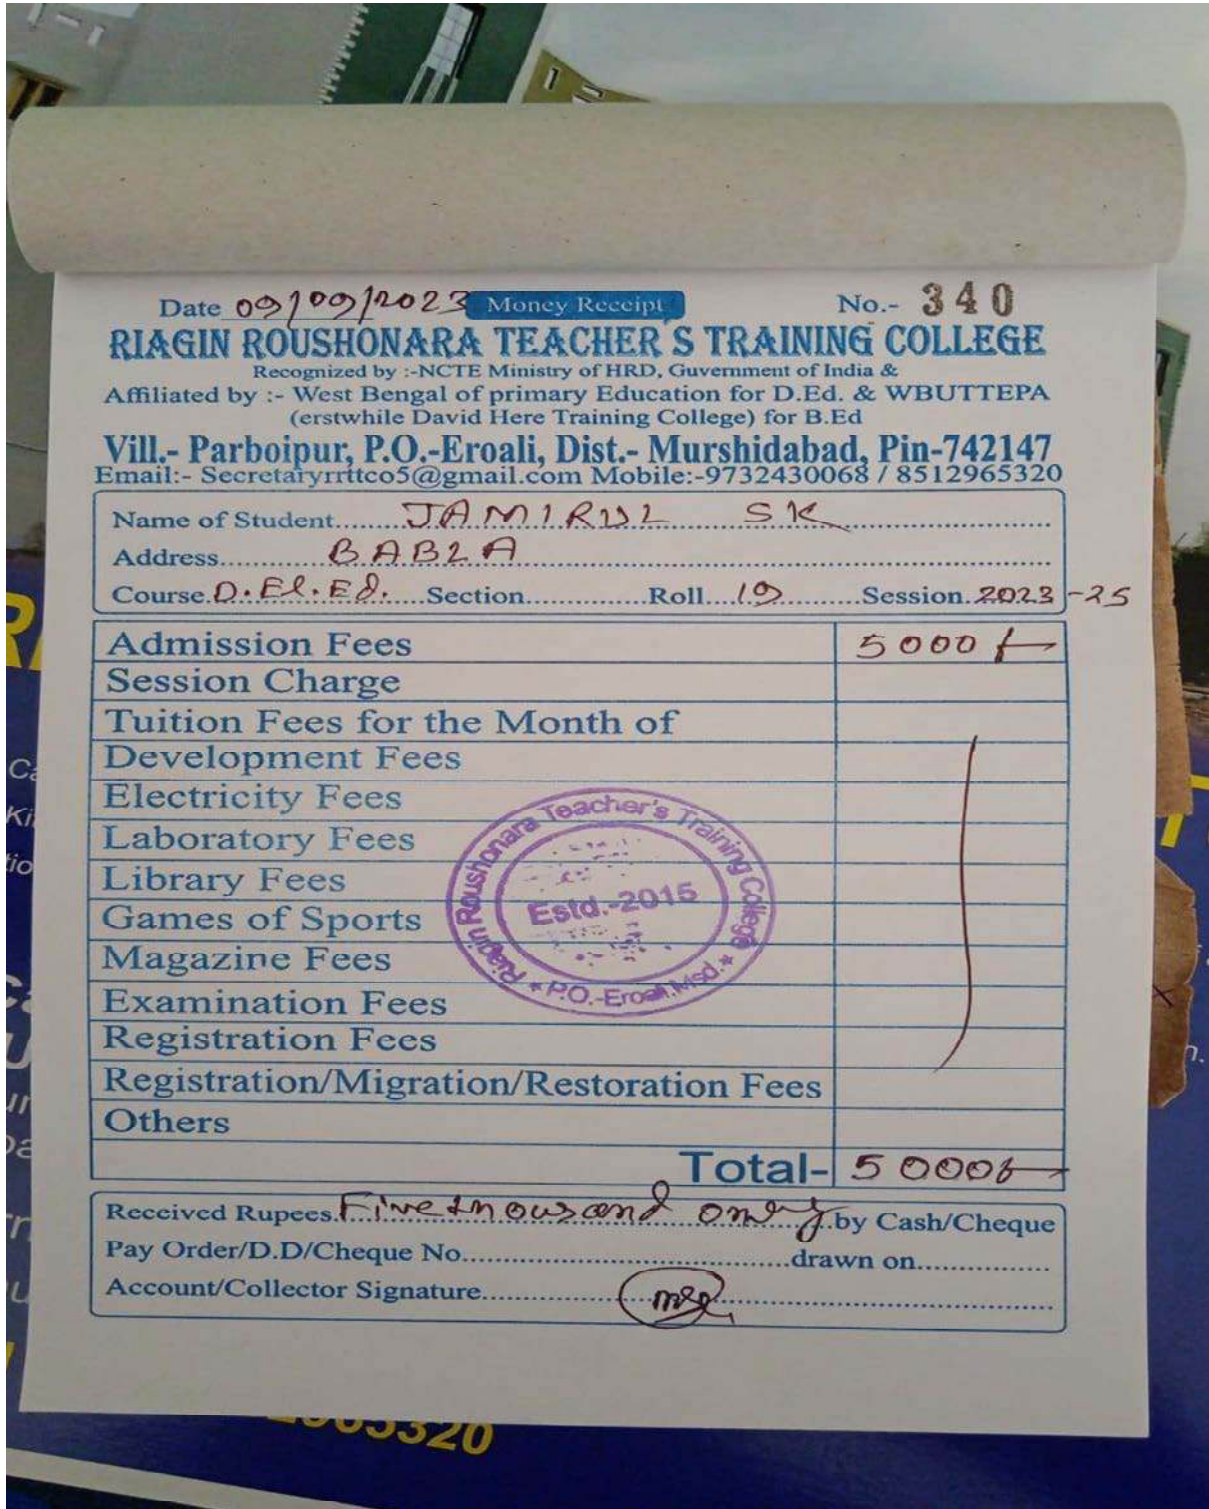 Date 09/09/2023 Money Receipt No.- 340
RIAGIN ROUSHONARA TEACHER'S TRAINING COLLEGE
Recognized by :-NCTE Ministry of HRD, Guvernment of India &
Affiliated by :- West Bengal of primary Education for D.Ed. & WBUTTEPA
(erstwhile David Here Training College) for B.Ed
Vill.- Parboipur, P.O.-Eroali, Dist.- Murshidabad, Pin-742147
Email:- Secretaryrrttco5@gmail.com Mobile:-9732430068 / 8512965320
Name of Student........JAMIRUL SK..................
Address............BABLA..................
Course.D.El.Ed.....Section.............Roll...19..........Session.2023-25
Admission Fees 5000/-
Session Charge
Tuition Fees for the Month of
Development Fees
Electricity Fees
Laboratory Fees
Library Fees
Games of Sports
Magazine Fees
Examination Fees
Registration Fees
Registration/Migration/Restoration Fees
Others
Riagin Roushonara Teacher's Training College
Estd.-2015
* P.O.-Eroali.Msd. *
Total- 5000/-
Received Rupees.Five thousand only.by Cash/Cheque
Pay Order/D.D/Cheque No..................drawn on...............
Account/Collector Signature..................
5320